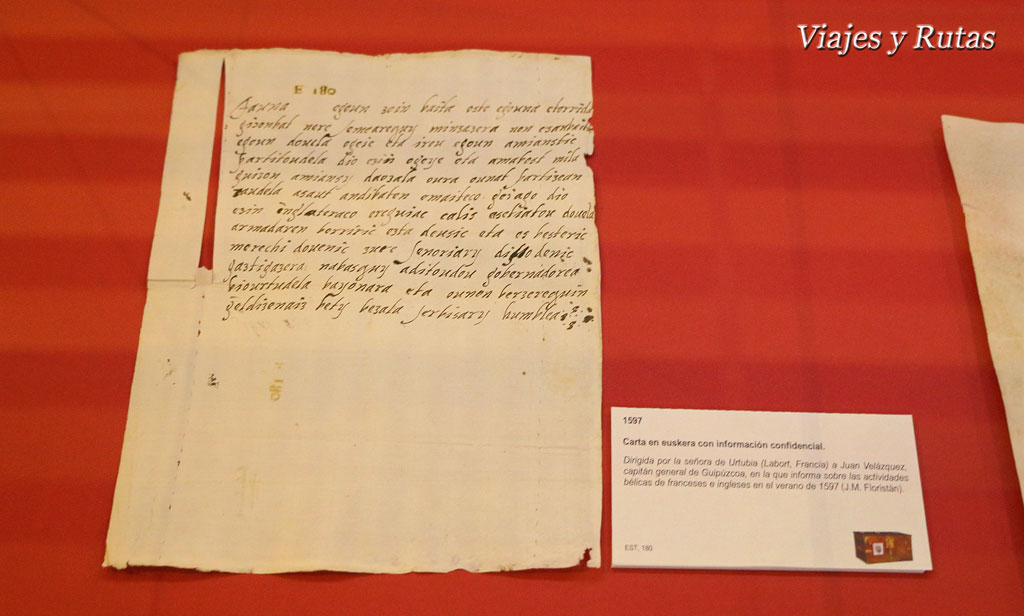 Viajes y Rutas
E 180
Jauna egoun zoin baita oste eguna etorrida
gizonbat nere semeareguy minzazera non
egoun douela ogeie eta irou egoun amianstic
partitoudela dio ezin ogeye eta amabost mila
guizon amiansy daozala oura ounat partizean
zaudela asaut andibaten emaiteco geiago dio
ezin englateraco erreguiac calis
armadaren berriric ezta deusic eta es besteric
merechi douenic zure senoriary
gaztigazera nabasguy aditoudou gobernadorea
biourtudela bayonara eta ounen berzereguin
geldizenaiz bety bezala serbizary humblea
1597
Carta en euskera con información confidencial.
Dirigida por la señora de Urtubia (Labort, Francia) a Juan Velázquez,
capitán general de Guipúzcoa, en la que informa sobre las actividades
bélicas de franceses e ingleses en el verano de 1597 (J.M. Floristán).
EST, 180